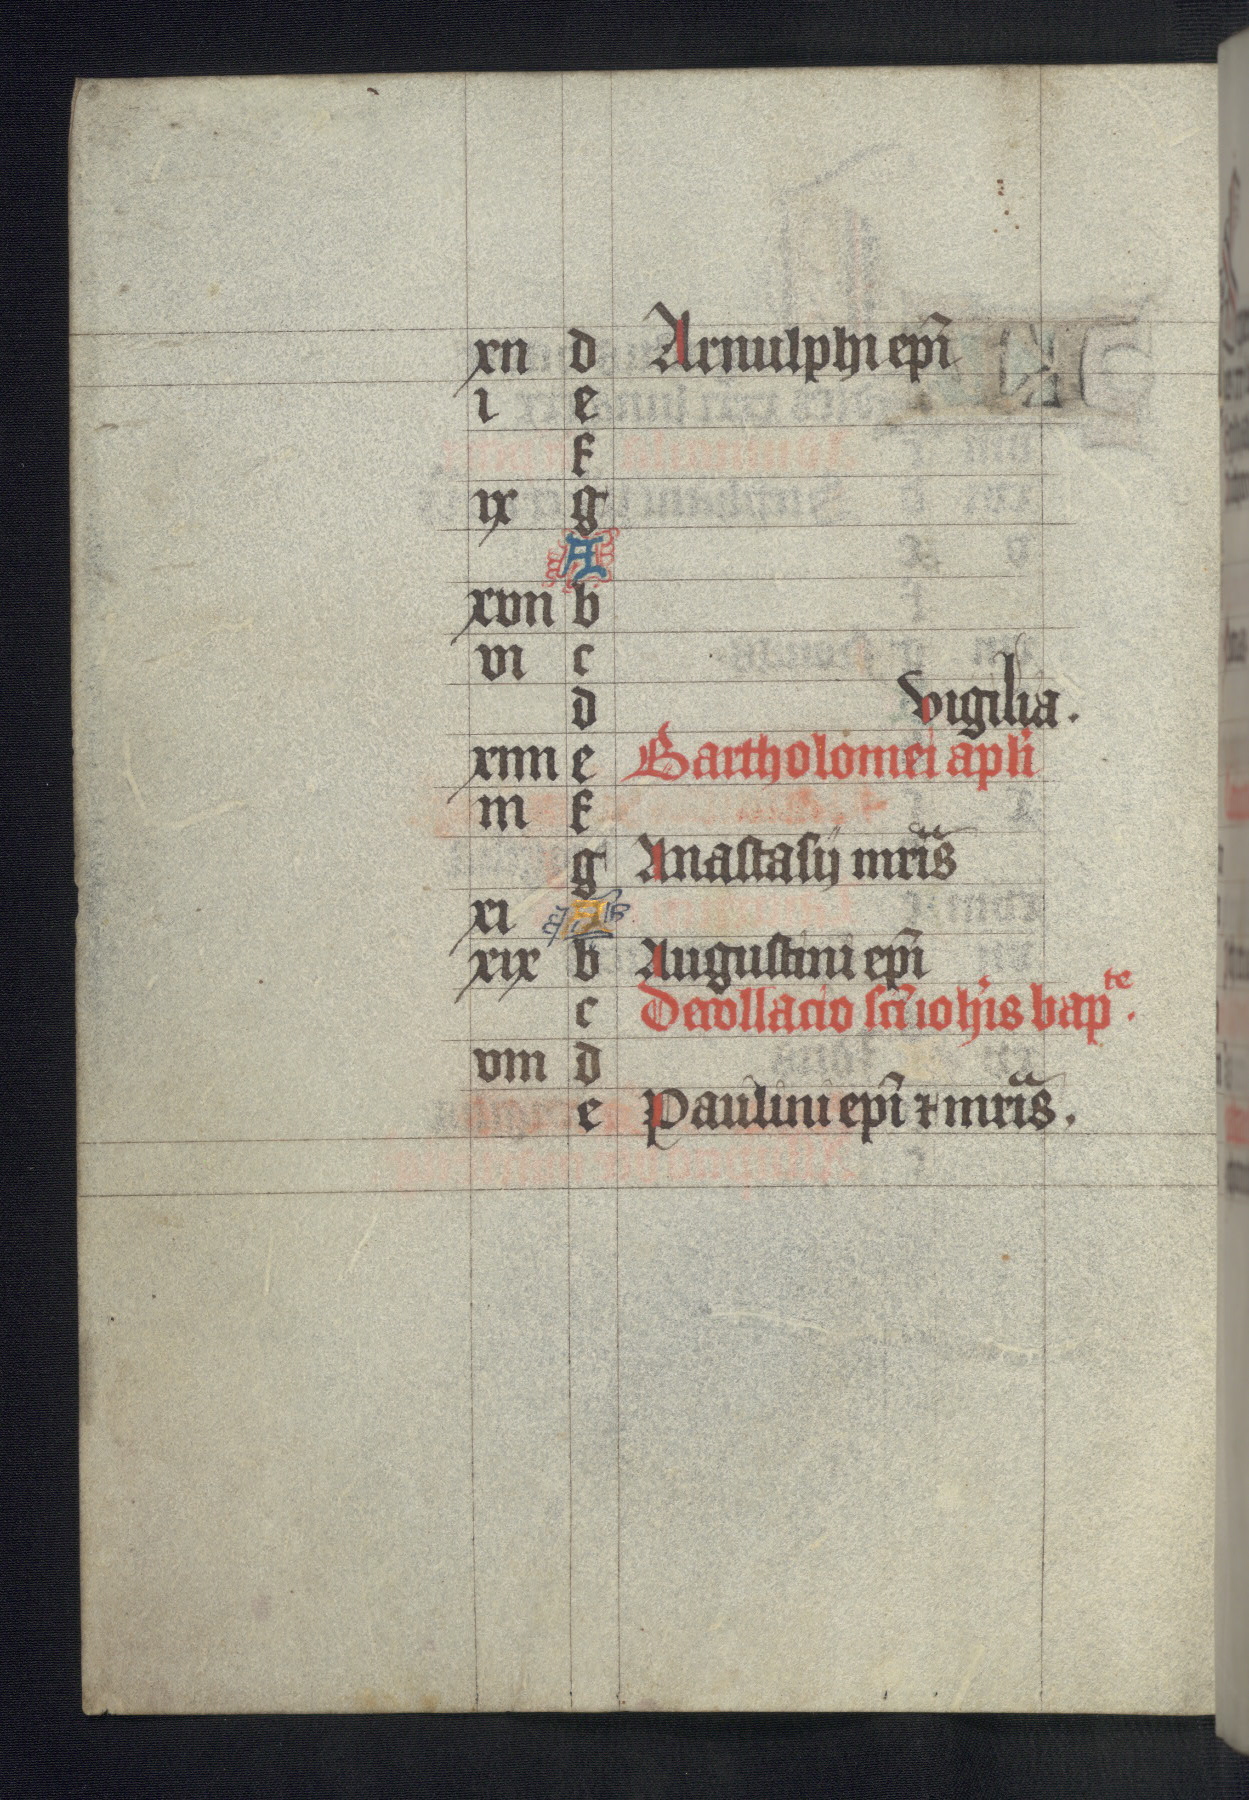 xii d Arnulphi epī
i e
f
ix g
A
xvii b
vi c
d vigilia.
xiiii e Bartholomei apli
iii f
g Anastasij mrīs
xi A
xix b Augustini epī
c Decollacio scī ioh'is bapte.
viii d
e Paulini epī ⁊ mrīs.